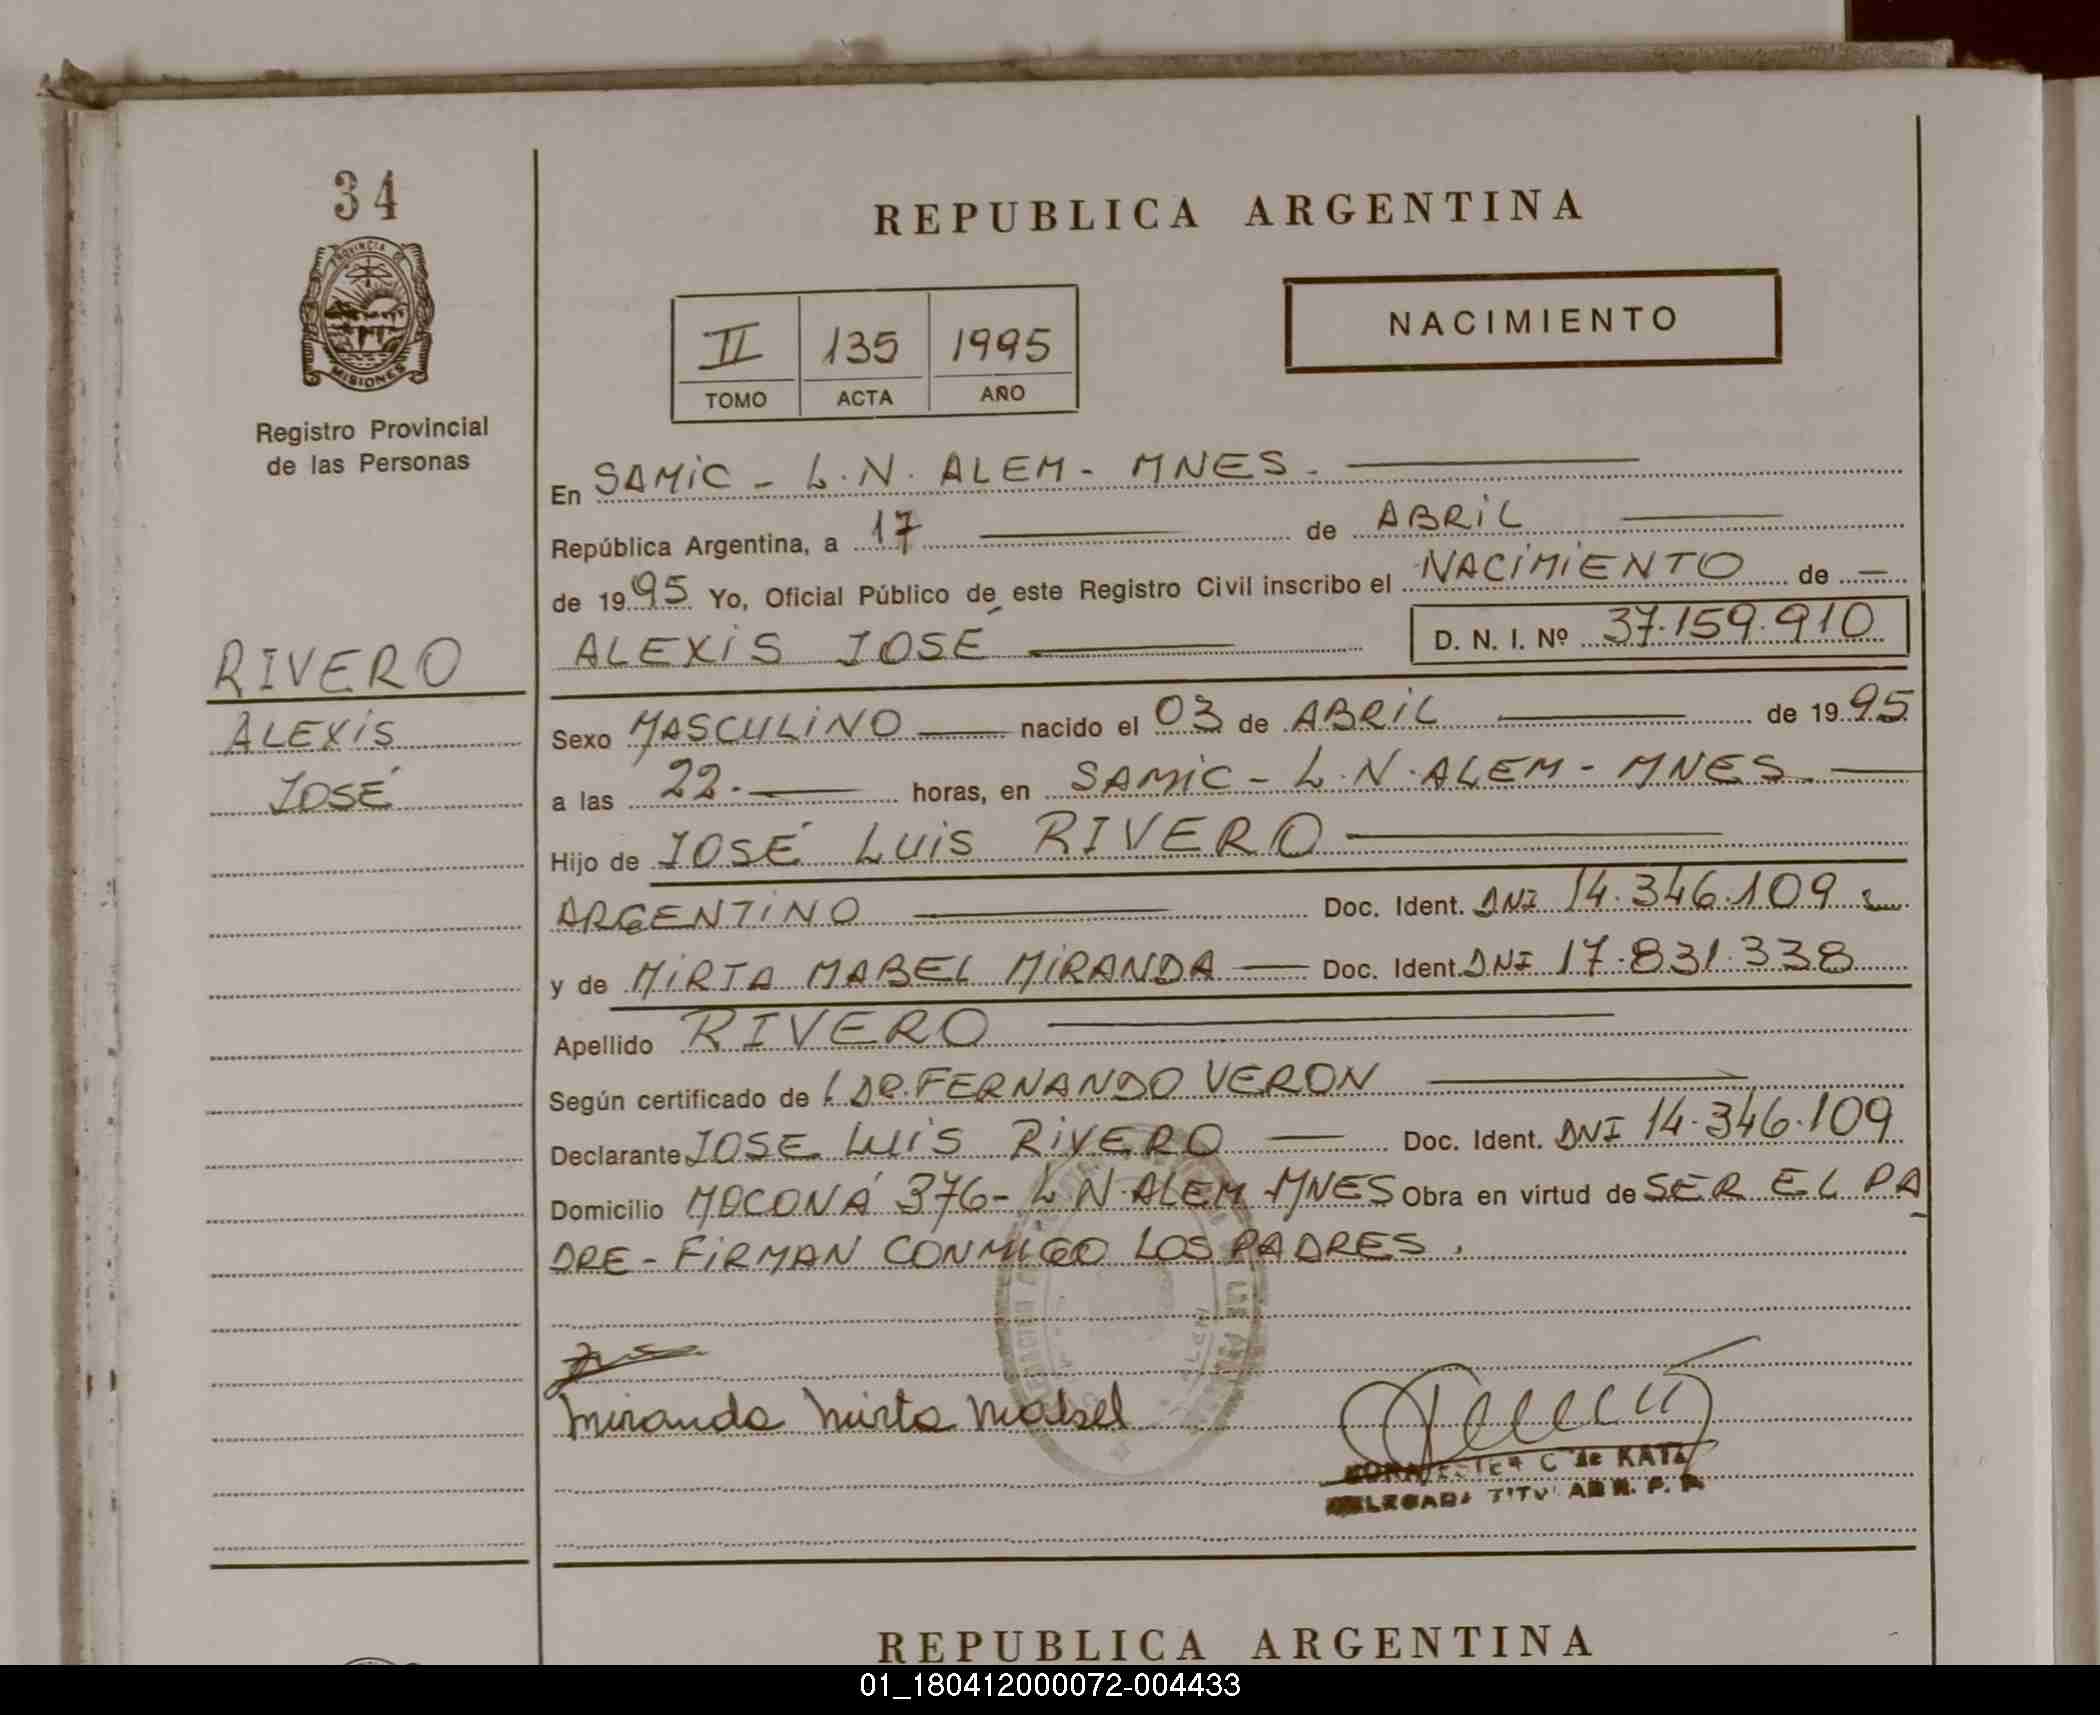 34
PROVINCIA DE
MISIONES
Registro Provincial
de las Personas
RIVERO
ALEXIS
JOSÉ
REPUBLICA ARGENTINA
II 135 1995
TOMO ACTA AÑO
NACIMIENTO
En SAMIC - L.N. ALEM - MNES.
República Argentina, a 17 de ABRIL
de 1995 Yo, Oficial Público de este Registro Civil inscribo el NACIMIENTO de
ALEXIS JOSÉ D. N. I. Nº 37.159.910
Sexo MASCULINO nacido el 03 de ABRIL de 1995
a las 22. horas, en SAMIC - L.N. ALEM - MNES.
Hijo de JOSÉ LUIS RIVERO
ARGENTINO Doc. Ident. DNI 14.346.109
y de MIRTA MABEL MIRANDA Doc. Ident. DNI 17.831.338
Apellido RIVERO
Según certificado de DR. FERNANDO VERON
Declarante JOSE LUIS RIVERO Doc. Ident. DNI 14.346.109
Domicilio MOCONÁ 376 - L.N. ALEM - MNES Obra en virtud de SER EL PA
DRE - FIRMAN CONMIGO LOS PADRES.
Miranda Mirta Mabel
C de KATZ
REPUBLICA ARGENTINA
01_180412000072-004433